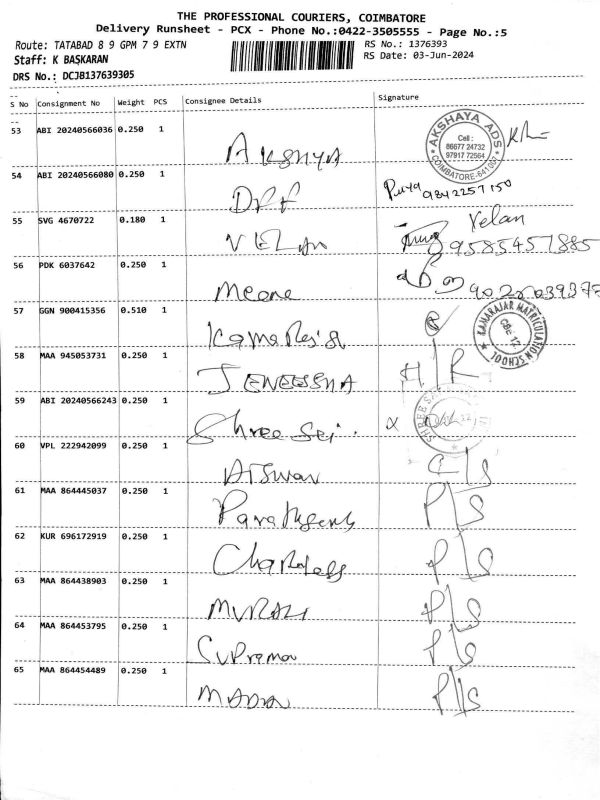 THE PROFESSIONAL COURIERS, COIMBATORE
Delivery Runsheet - PCX - Phone No.:0422-3505555 - Page No.:5
Route: TATABAD 8 9 GPM 7 9 EXTN
RS No.: 1376393
Staff: K BASKARAN
RS Date: 03-Jun-2024
DRS No.: DCJB137639305
S No Consignment No Weight PCS Consignee Details Signature
53 ABI 20240566036 0.250 1 AKSHYA
AKSHAYA ADS
Cell :
86677 24732
97917 72564
COIMBATORE-641
54 ABI 20240566080 0.250 1
Puya 9842257150
55 SVG 4670722 0.180 1 VELAN
Velan
9585457885
56 PDK 6037642 0.250 1 Meone
57 GGN 900415356 0.510 1
KAMARAJAR MATRICULATION SCHOOL
CBE 12
58 MAA 945053731 0.250 1 JENEESHA
H/R
59 ABI 20240566243 0.250 1 Shree Sai
SHREE
60 VPL 222942099 0.250 1
C/S
61 MAA 864445037 0.250 1
P/S
62 KUR 696172919 0.250 1
P/S
63 MAA 864438903 0.250 1 MURALI
P/S
64 MAA 864453795 0.250 1
P/S
65 MAA 864454489 0.250 1 MADAN
P/S